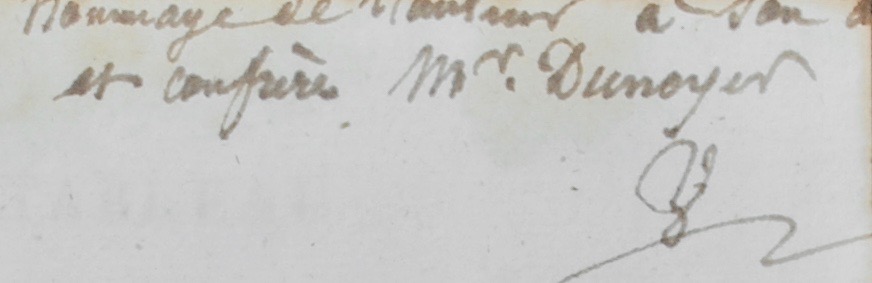 Hommage de l'auteur à son
et confrère Mr. Dunoyer